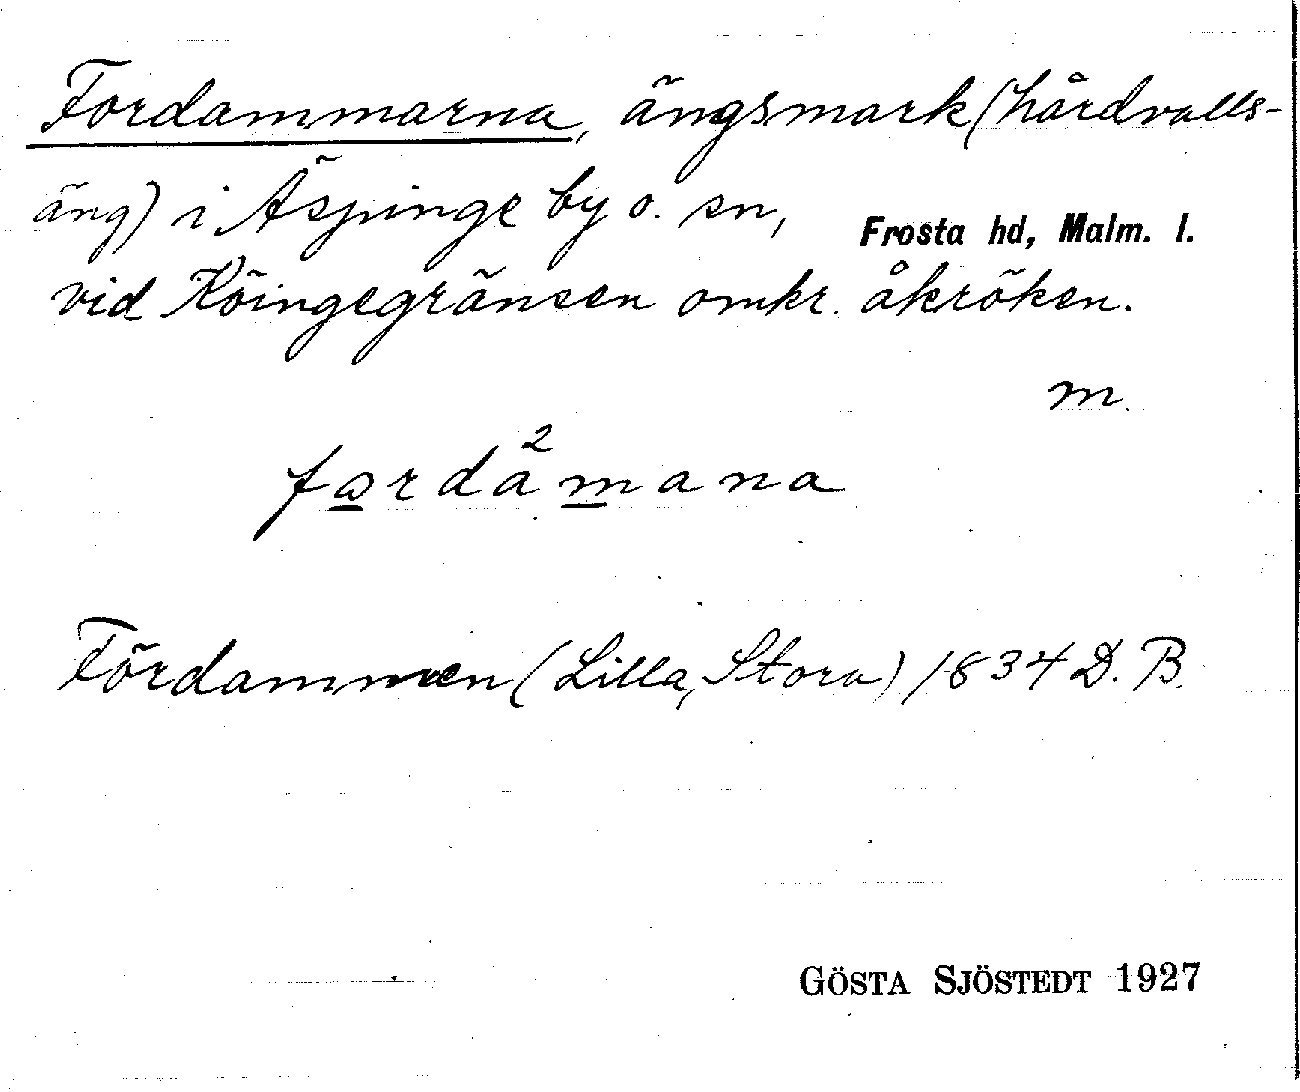 Fordammarna, ängsmark (hårdvalls-
äng) i Äspinge by o. sn, Frosta hd, Malm. l.
vid Köingegränsen omkr. åkröken.
m.
fordá²mana
Fördammen (Lilla, Stora) 1834 D. B.
GÖSTA SJÖSTEDT 1927